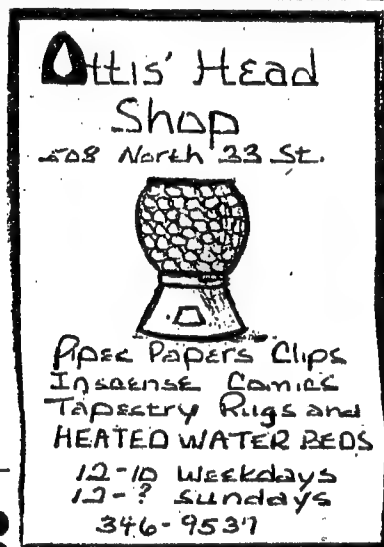 Ottis' Head
Shop
508 North 33 St.
Pipes Papers Clips
Inscense Comics
Tapestry Rugs and
HEATED WATER BEDS
12-10 Weekdays
12-? Sundays
346-9537